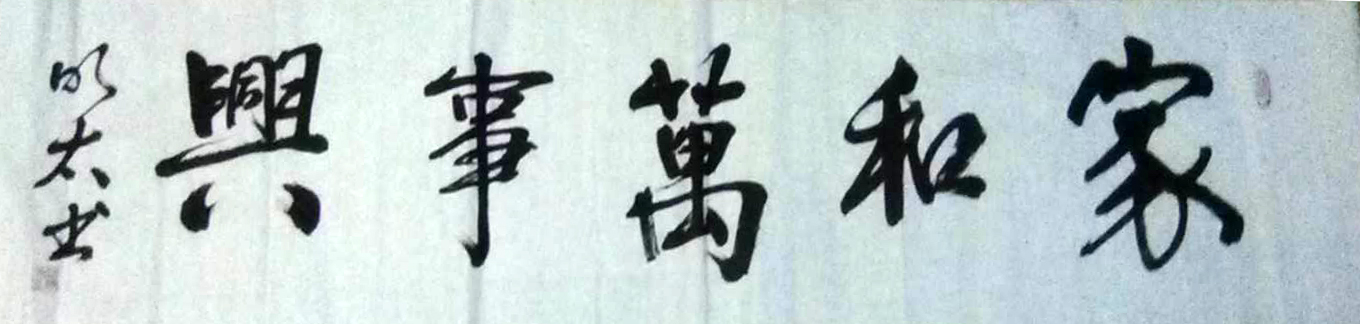 家和萬事興
明太书